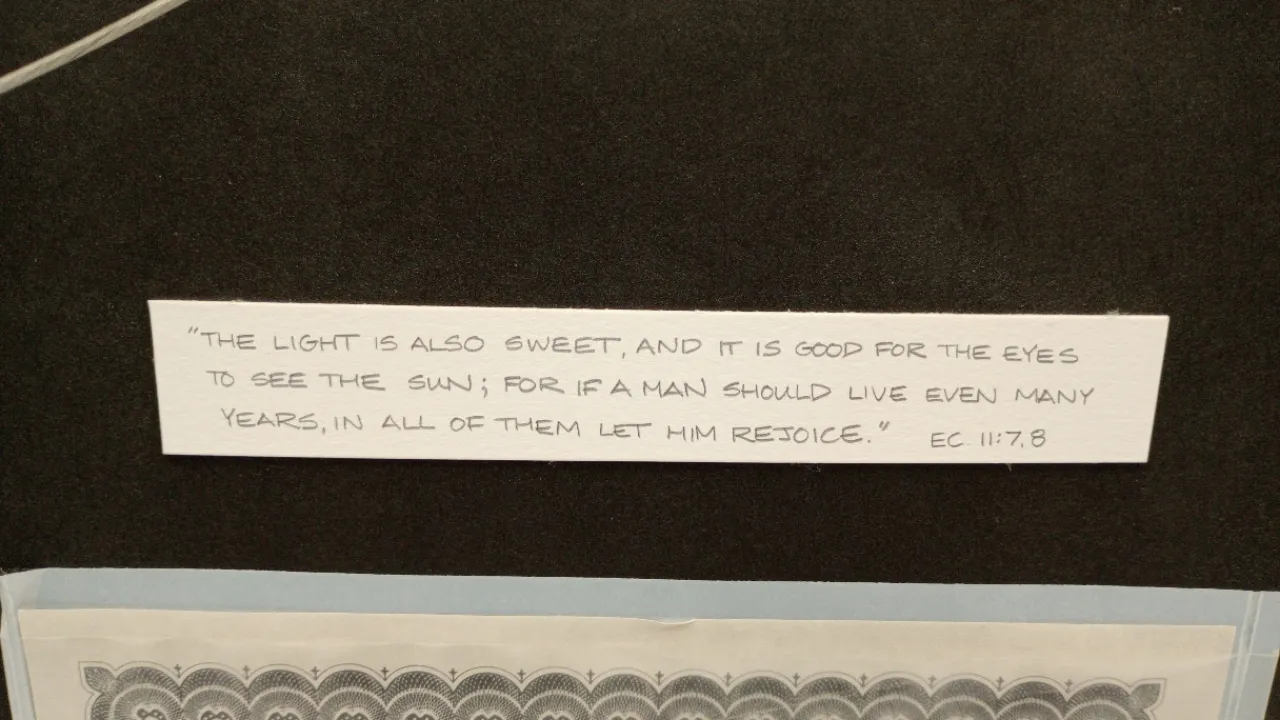 "THE LIGHT IS ALSO SWEET, AND IT IS GOOD FOR THE EYES
TO SEE THE SUN; FOR IF A MAN SHOULD LIVE EVEN MANY
YEARS, IN ALL OF THEM LET HIM REJOICE." EC. 11:7,8